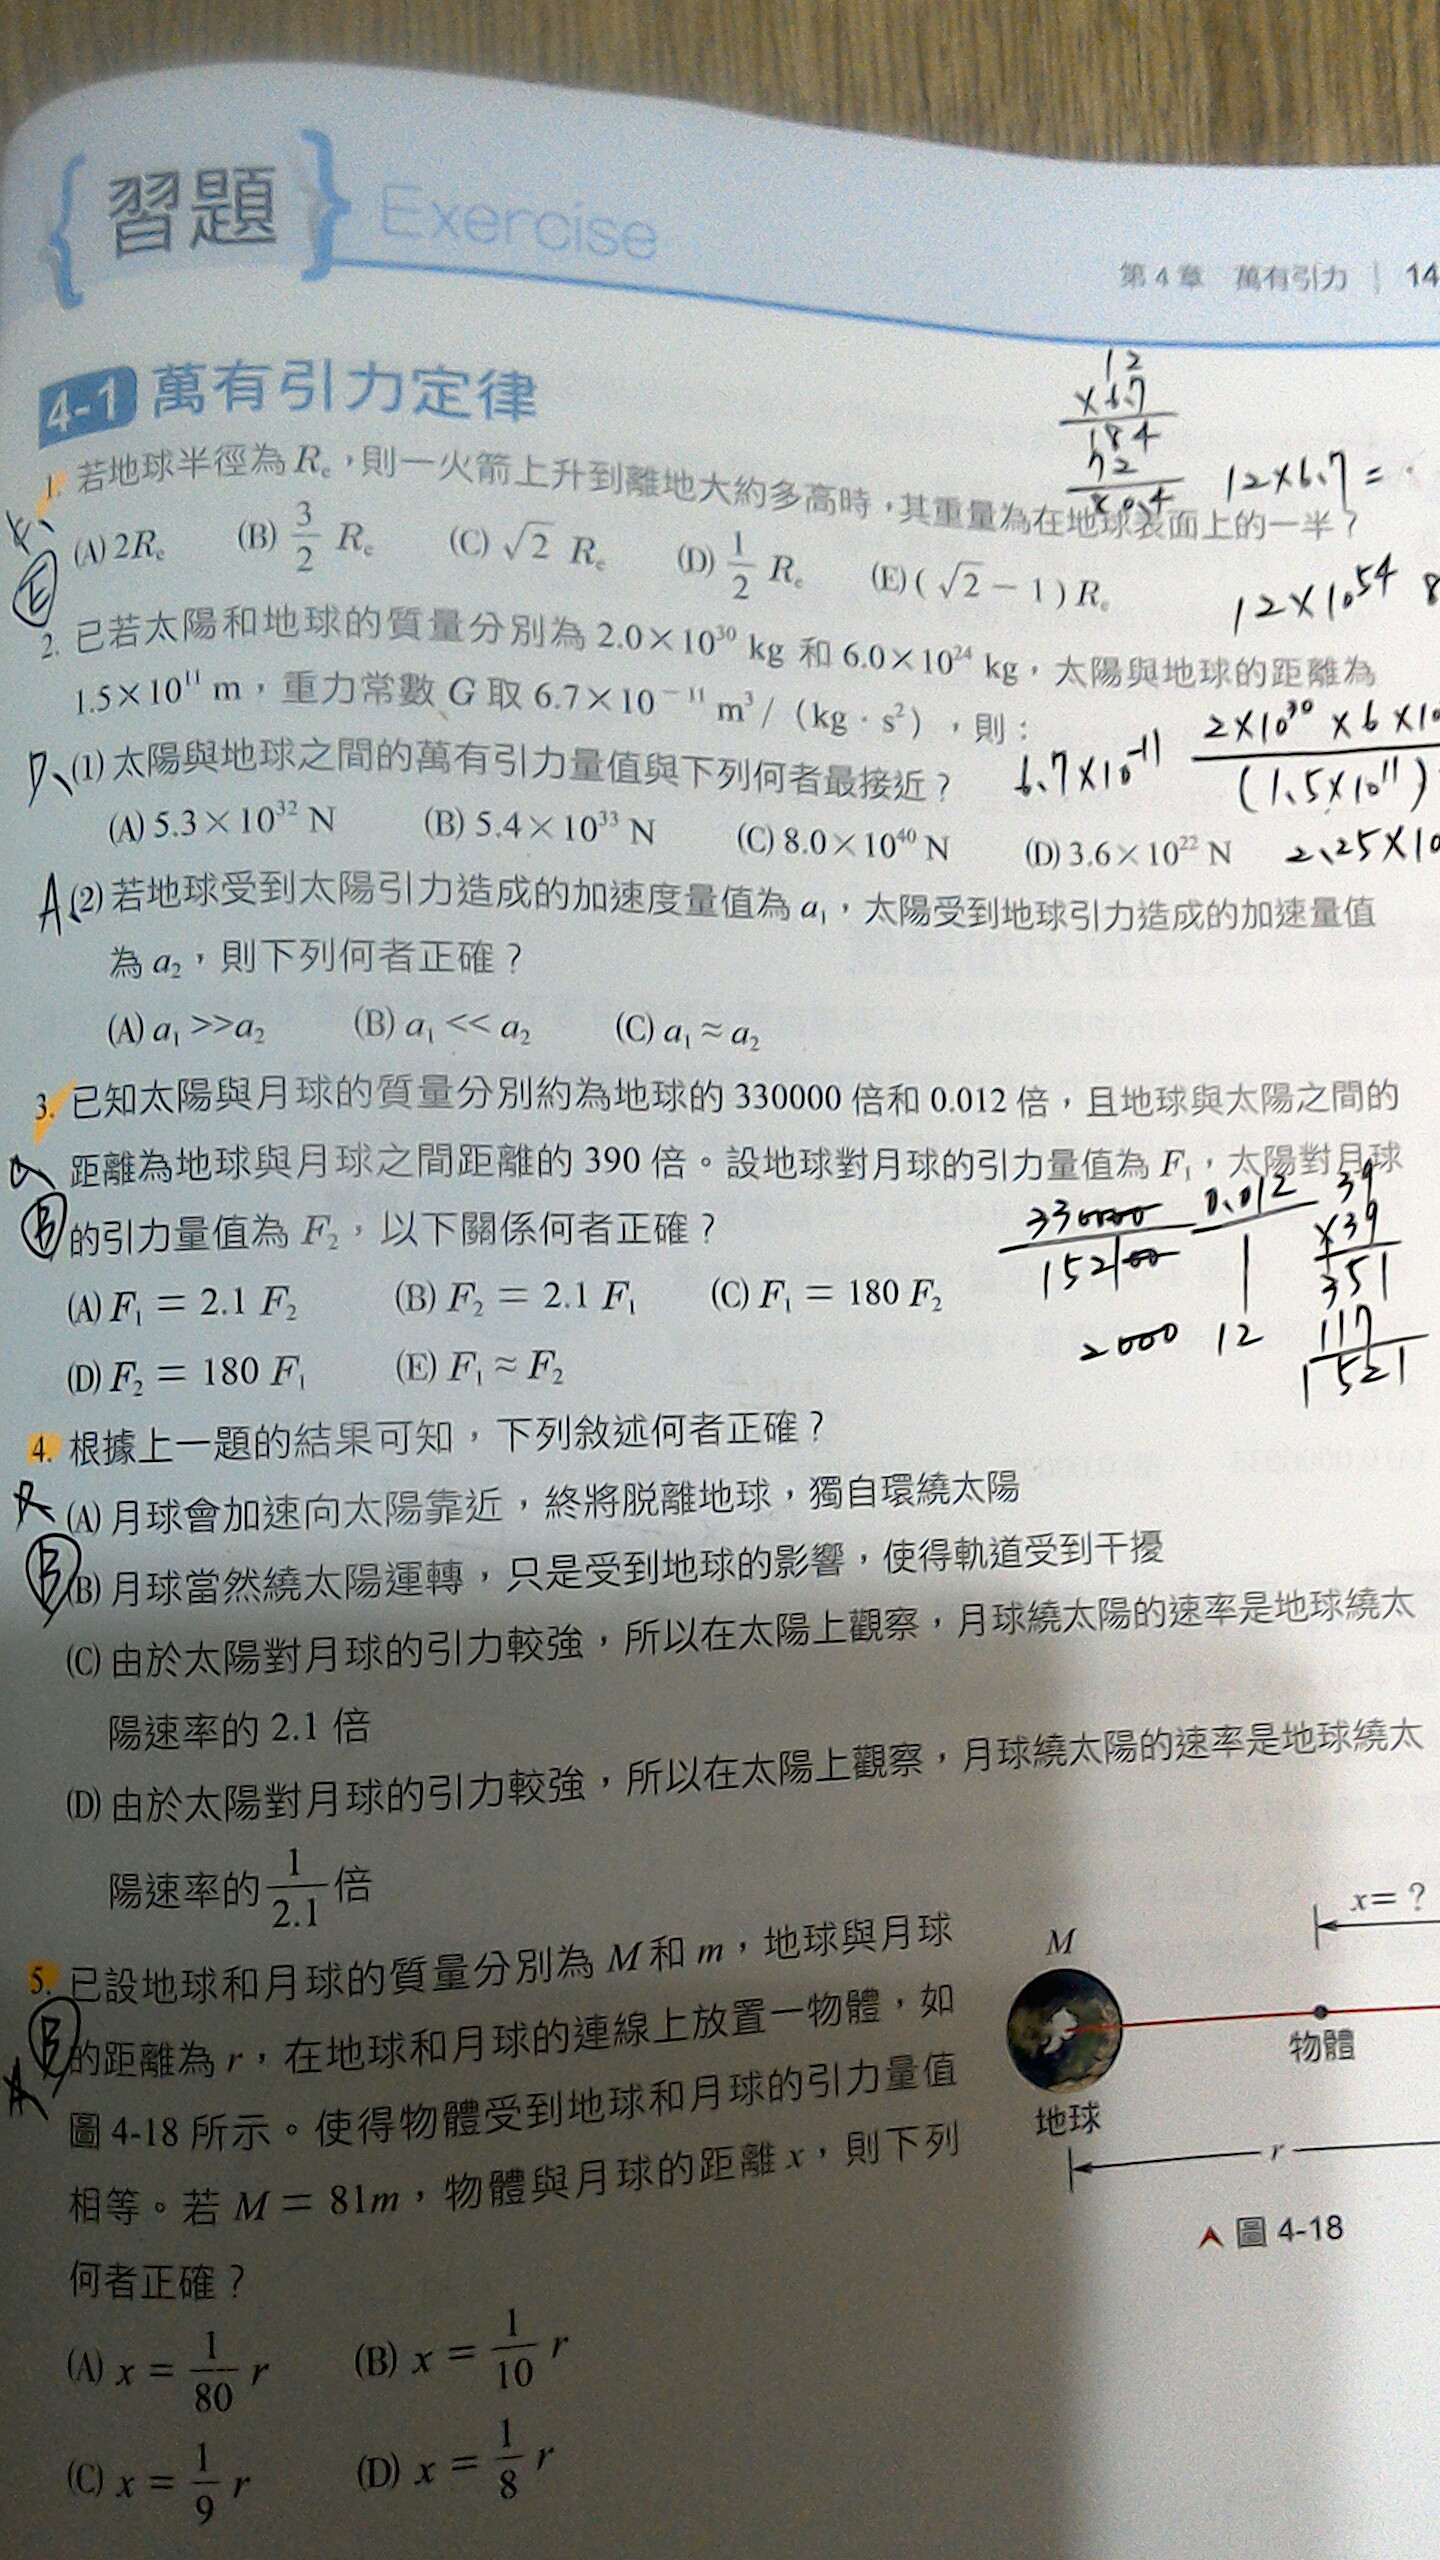 {習題} Exercise
第4章 萬有引力 | 14
4-1 萬有引力定律
12
×6.7
184
72
80.4
12×6.7=
1. 若地球半徑為 Re,則一火箭上升到離地大約多高時,其重量為在地球表面上的一半?
E
(A) 2Re (B) 3/2 Re (C) √2 Re (D) 1/2 Re (E) (√2 − 1) Re
12×10^54 8
2. 已若太陽和地球的質量分別為 2.0×10^30 kg 和 6.0×10^24 kg,太陽與地球的距離為
1.5×10^11 m,重力常數 G 取 6.7×10^−11 m³/(kg·s²),則:
D、(1) 太陽與地球之間的萬有引力量值與下列何者最接近?
6.7×10^-11 2×10^30×6×10
(1.5×10^11)
2.25×10
(A) 5.3×10^32 N (B) 5.4×10^33 N (C) 8.0×10^40 N (D) 3.6×10^22 N
A、(2) 若地球受到太陽引力造成的加速度量值為 a₁,太陽受到地球引力造成的加速量值
為 a₂,則下列何者正確?
(A) a₁ >> a₂ (B) a₁ << a₂ (C) a₁ ≈ a₂
3. 已知太陽與月球的質量分別約為地球的 330000 倍和 0.012 倍,且地球與太陽之間的
距離為地球與月球之間距離的 390 倍。設地球對月球的引力量值為 F₁,太陽對月球
B
的引力量值為 F₂,以下關係何者正確?
330000 0.012
152100 1
2000 12
39
×39
351
117
1521
(A) F₁ = 2.1 F₂ (B) F₂ = 2.1 F₁ (C) F₁ = 180 F₂
(D) F₂ = 180 F₁ (E) F₁ ≈ F₂
4. 根據上一題的結果可知,下列敘述何者正確?
(A) 月球會加速向太陽靠近,終將脫離地球,獨自環繞太陽
B
(B) 月球當然繞太陽運轉,只是受到地球的影響,使得軌道受到干擾
(C) 由於太陽對月球的引力較強,所以在太陽上觀察,月球繞太陽的速率是地球繞太
陽速率的 2.1 倍
(D) 由於太陽對月球的引力較強,所以在太陽上觀察,月球繞太陽的速率是地球繞太
陽速率的 1/2.1 倍
5. 已設地球和月球的質量分別為 M 和 m,地球與月球
B
的距離為 r,在地球和月球的連線上放置一物體,如
圖 4-18 所示。使得物體受到地球和月球的引力量值
相等。若 M = 81m,物體與月球的距離 x,則下列
何者正確?
(A) x = 1/80 r (B) x = 1/10 r
(C) x = 1/9 r (D) x = 1/8 r
x=?
M
物體
地球
r
圖 4-18